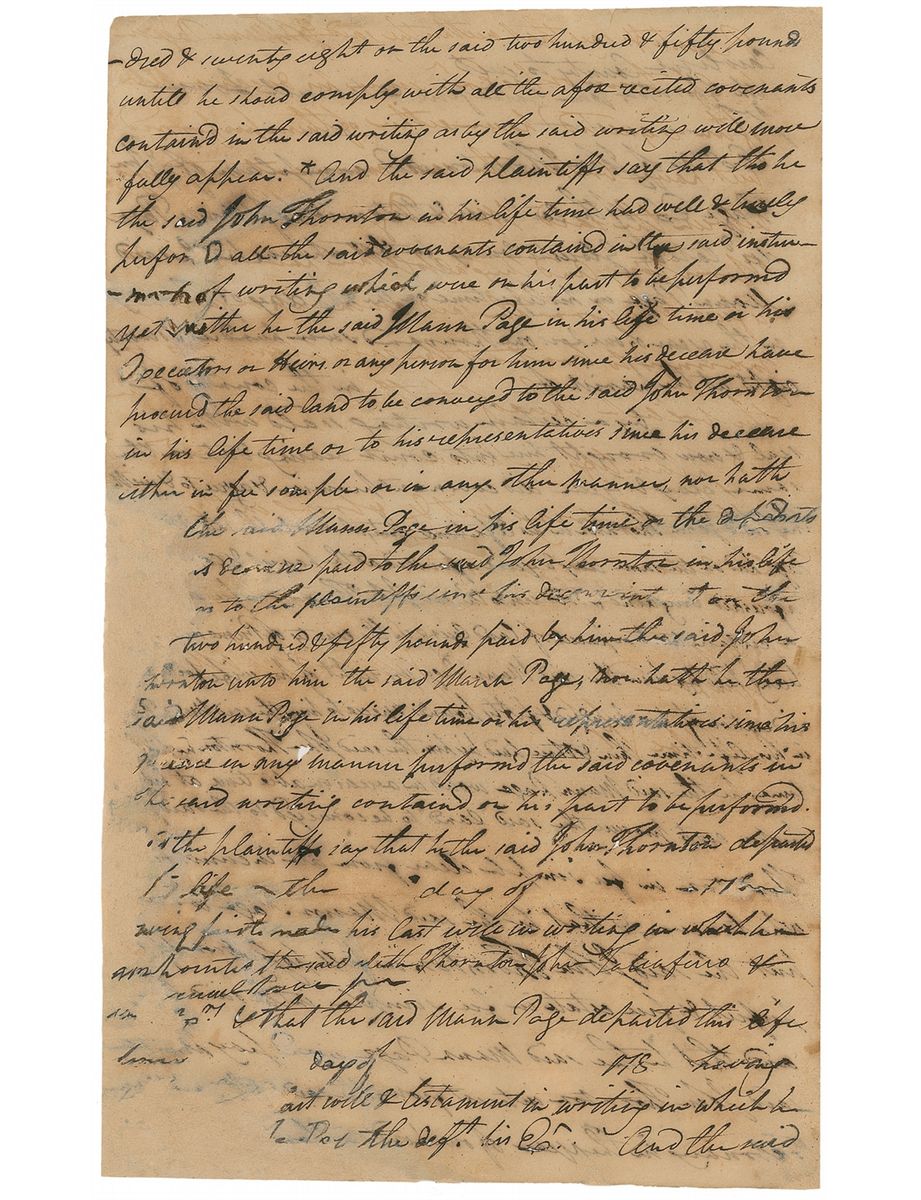 -dred & seventy eight on the said two hundred & fifty pounds
untill he should comply with all the afore recited covenants
containd in the said writing as by the said writing will more
fully appear. * And the said plaintiffs say that tho he
the said John Thornton in his life time had well & truly
perfor d all the said covenants contained in the said instru-
of writing which were on his part to be performed
yet neither he the said Mann Page in his life time or his
Executors or Heirs or any person for him since his decease have
procurd the said land to be conveyed to the said John Thornton
in his life time or to his representatives since his decease
either in fee simple or in any other manner, nor hath
the said Mann Page in his life time or the
paid to the said John Thornton in his life
to the plaintiffs since his on the
two hundred & fifty pounds paid by him the said John
hornton unto him the said Mann Page, nor hath he the
said Mann Page in his life time or his representatives since his
in any manner performd the said covenants in
the said writing contained on his part to be performd.
the plaintiffs say that he the said John Thornton departed
life the day of
ving first made his last will in writing in which he
the said Seth Thornton John Taliaferro &
that the said Mann Page departed this life
day of 178 having
will & testament in writing in which he
the deft. his Ex. And the said